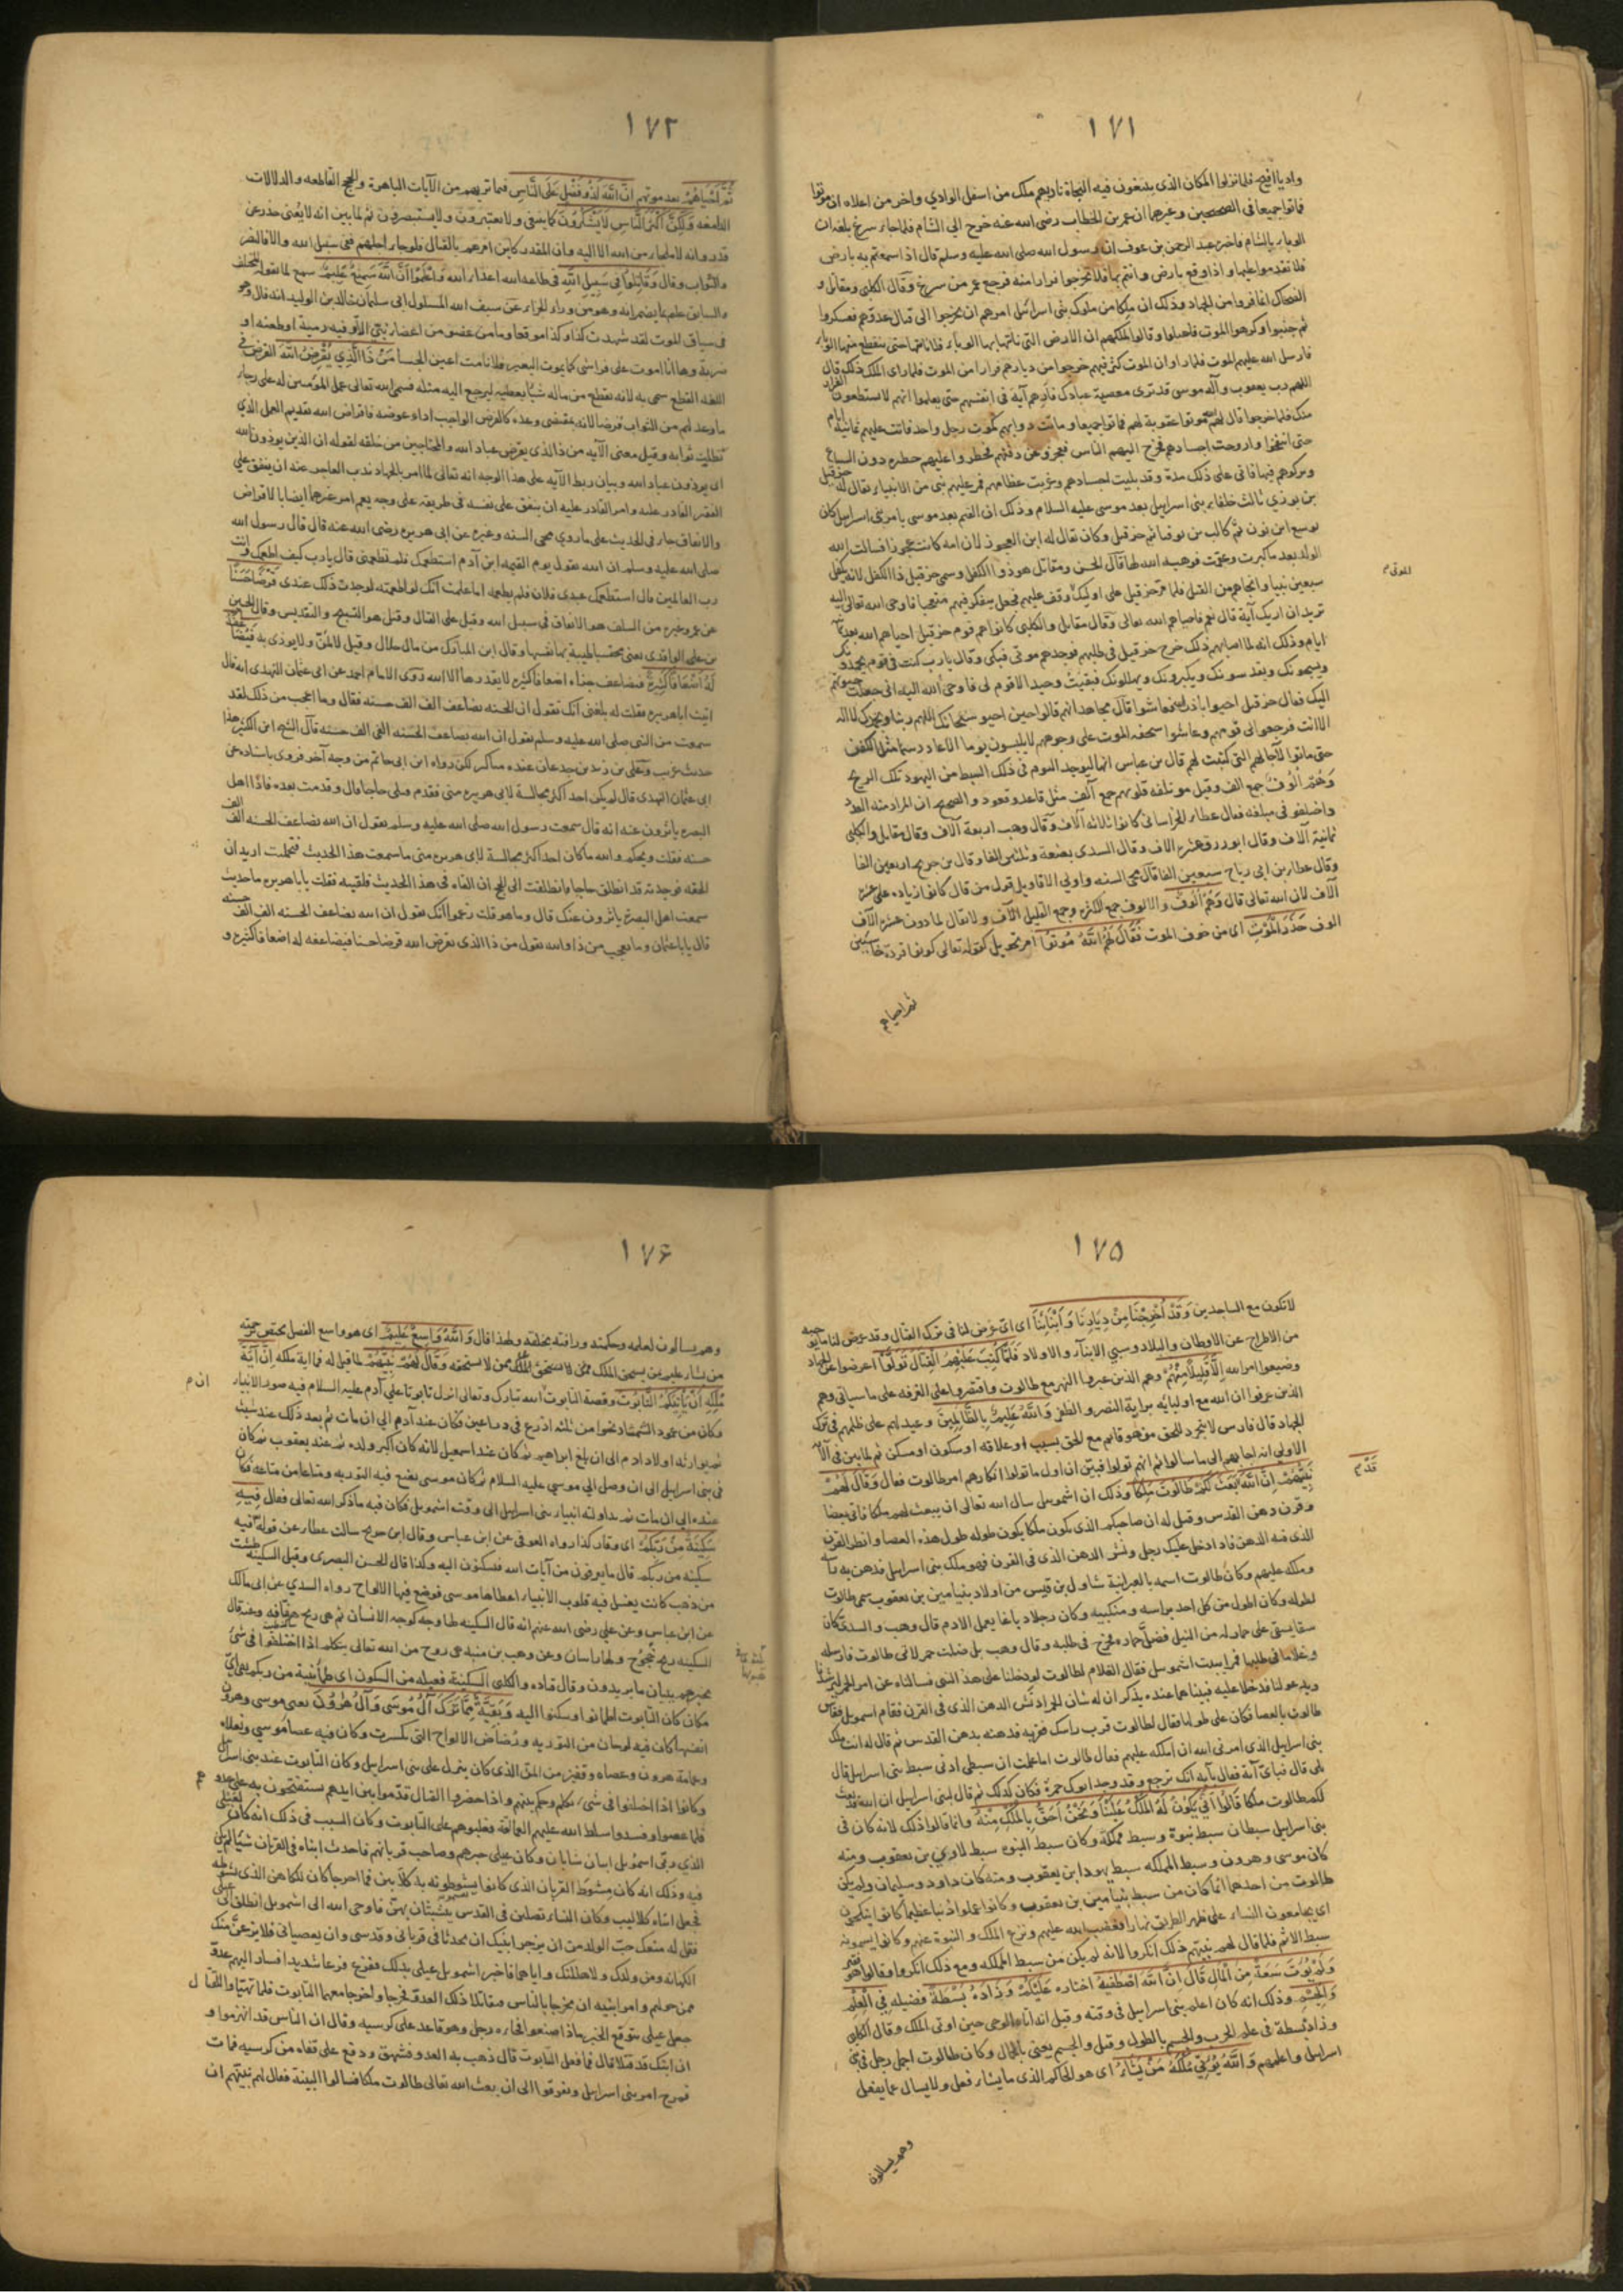 ١٧١
واديا افيح فلما نزلوا المكان الذي يبتغون فيه النجاة ناديهم ملك من اسفل الوادي واخر من اعلاه ان موتوا
فماتوا جميعا في الصحيحين وغيرهما ان عمر بن الخطاب رضى الله عنه خرج الى الشأم فلما جاء سرغ بلغه ان
الوباء بالشام فاخبره عبد الرحمن بن عوف ان رسول الله صلى الله عليه وسلم قال اذا سمعتم به بارض
فلا تقدموا عليها واذا وقع بارض وانتم بها فلا تخرجوا فرارا منه فرجع عمر من سرغ وقال الكلبى ومقاتل و
الضحاك انما فروا من الجهاد وذلك ان ملكا من ملوك بنى اسرائيل امرهم ان يخرجوا الى قتال عدوهم فعسكروا
ثم جبنوا وكرهوا الموت فاعتلوا وقالوا لملكهم ان الارض التى نأتيها بها الوباء فلا نأتيها حتى ينقطع منها الوباء
فارسل الله عليهم الموت فلما راوا ان الموت كثر فيهم خرجوا من ديارهم فرارا من الموت فلما راى الملك ذلك قال
اللهم رب يعقوب وآله موسى قد ترى معصية عبادك فارهم آية فى انفسهم حتى يعلموا انهم لا يستطعون الفرار
منك فلما خرجوا قال لهم الله موتوا عقوبة لهم فماتوا جميعا وماتت دوابهم كموت رجل واحد فاتت عليهم ثمانية ايام
حتى انتفخوا واروحت اجسادهم فخرج اليهم الناس فعجزوا عن دفنهم فحظروا عليهم حظيرة دون السباع
وتركوهم فيها فاتى على ذلك مدة وقد بليت اجسادهم وعريت عظامهم فمر عليهم نبى من الانبياء يقال له حزقيل
بن بوذي ثالث خلفاء بنى اسراىيل بعد موسى عليه السلام وذلك ان القيم بعد موسى بامر بنى اسرايل كان
يوسع ابن نون ثم كالب بن يوقنا ثم حزقيل وكان يقال له ابن العجوز لان امه كانت عجوزا فسالت الله
الولد بعد ما كبرت وعقمت فوهبه الله لها قال الحسن ومقاتل هو ذوا الكفل وسمى حزقيل ذا الكفل لانه يكفل
سبعين نبيا وانجاهم من القتل فلما مر حزقيل على اوليك وقف عليهم فجعل يتفكر فيهم متعجبا فاوحى الله تعالى اليه
تريد ان اريك آية قال نعم فاحياهم الله تعالى وقال مقاتل والكلبى كانوا هم قوم حزقيل احياهم الله بعد ثمانية
ايام وذلك انه لما اصابهم ذلك خرج حزقيل فى طلبهم فوجدهم موتى فبكى وقال يا رب كنت فى قوم يحمدونك
ويسبحونك ويقدسونك ويكبرونك ويهللونك فبقيت وحيدا لا قوم لى فاوحى الله اليه انى جعلت حيوتهم
اليك فقال حزقيل احيوا باذن الله فعاشوا قال مجاهد انهم قالوا حين احيوا سبحانك اللهم ربنا وبحمدك لا اله
الا انت فرجعوا الى قومهم وعاشوا سحنة الموت على وجوههم لا يلبسون ثوبا الا عاد دسما مثل الكفن
حتى ماتوا لآجالهم التى كتبت لهم قال بن عباس انها ليوجد اليوم فى ذلك السبط من اليهود تلك الريح
وَهُمْ اُلُوفٌ جمع الف وقيل مؤتلفه قلوبهم جمع آلف مثل قاعد وقعود والصحيح ان المراد منه العدد
واختلفو فى مبلغه فقال عطاء الخراسانى كانوا ثلاثه آلاف وقال وهب اربعة آلاف وقال مقاتل والكلبى
ثمانية آلاف وقال ابو روق عشره آلاف وقال السدى بضعة وثلثين الفا وقال بن جريج اربعين الفا
وقال عطا بن ابى رباح سبعين الفا قال محى السنه واولى الاقاويل قول من قال كانوا زياده على عشره
آلاف لان الله تعالى قال وَهُمْ اُلُوفٌ والالوف جمع الكثره وجمع القليل الآف ولا يقال لما دون عشره آلاف
الوف حَذَرَ الْمَوْتِ اى من خوف الموت فَقَالَ لَهُمُ اللهُ مُوتُوا امر تحويل كقوله تعالى كونوا قردة خاسئين
ثم احياهم
١٧٢
ثُمَّ اَحْيَاهُمْ بعد موتهم اِنَّ اللهَ لَذُو فَضْلٍ عَلَى النَّاسِ فيما تريهم من الآيات الباهرة والحجج القاطعه والدلالات
الدامغه وَلَكِنَّ اَكْثَرَ النَّاسِ لَا يَشْكُرُونَ كما ينبغى ولا يعتبرون ولا يستبصرون ثم لما بين انه لا يغنى حذر عن
قدر وانه لا ملجاء من الله الا اليه وان المقدر كائن امرهم بالقتال فلو جاء اجلهم فى سبيل الله والا فالنصر
والثواب وقال وَقَاتِلُوا فِى سَبِيلِ اللهِ فى طاعه الله اعداء الله وَاعْلَمُوا اَنَّ اللهَ سَمِيعٌ عَلِيمٌ سميع لما يقوله المتخلف
والسابق عليم بما يضمرانه وهو من وراء الجزاء عن سيف الله المسلول ابى سليمان خالد بن الوليد انه قال وهو
فى سياق الموت لقد شهدت كذا وكذا موقفا وما من عضو من اعضاى الا وفيه رمية او طعنه او
ضربة وها انا اموت على فراشى كما يموت البعير فلا نامت اعين الجبناء مَنْ ذَا الَّذِى يُقْرِضُ اللهَ القرض فى
اللغه القطع سمى به لانه يقطع من ماله شيئا يعطيه ليرجع اليه مثله فسمى الله تعالى عمل المؤمنين له على رجاء
ما وعد لهم من الثواب قرضا لانه بمقتضى وعده كالقرض الواجب اداء عوضه فاقراض الله تقديم العمل الذي
تطلب ثوابه وقيل معنى الآيه من ذا الذى يقرض عباد الله والمحتاجين من خلقه لقوله ان الذين يوذون الله
اى يوذون عباد الله وبيان ربط الآيه على هذا الوجه انه تعالى لما امر بالجهاد ندب العاجز عنه ان ينفق على
الفقير القادر عليه وامر القادر عليه ان ينفق على نفسه فى طريقه على وجه يعم امر غيرهما ايضا بالاقراض
والانفاق جاء فى الحديث على ما روى محى السنه وغيره عن ابى هريره رضى الله عنه قال قال رسول الله
صلى الله عليه وسلم ان الله يقول يوم القيمه ابن آدم استطعمتك فلم تطعمنى قال يا رب كيف اطعمك وانت
رب العالمين قال استطعمك عبدى فلان فلم تطعمه اما علمت انك لو اطعمته لوجدت ذلك عندى قَرْضًا حَسَنًا
عن عمر وغيره من السلف هو الانفاق فى سبيل الله وقيل على القتال وقيل هو التسبيح والتقديس وقال الحسين
بن على الواقدى يعنى محتسبا طيبة بها نفسه وقال ابن المبارك من مال حلال وقيل لا يمن ولا يوذى به فَيُضَاعِفَهُ
لَهُ اَضْعَافًا كَثِيرَةً فيضاعف جزاءه اضعافا كثيره لا يقدرها الا الله روى الامام احمد عن ابى عثمان النهدى انه قال
اتيت ابا هريره فقلت له بلغنى انك تقول ان الحسنه تضاعف الف الف حسنه فقال وما اعجب من ذلك لقد
سمعت من النبى صلى الله عليه وسلم يقول ان الله يضاعف الحسنه الفى الف حسنه قال الشيخ ابن الكثير هذا
حديث غريب وعلى بن زيد بن جدعان عنده مناكير لكن رواه ابن ابى حاتم من وجه آخر فروى باسناده عن
ابى عثمان النهدى قال لم يكن احد اكثر مجالسة لابى هريره منى فقدم قبلى حاجا قال وقدمت بعده فاذا اهل
البصره يأثرون عنه انه قال سمعت رسول الله صلى الله عليه وسلم يقول ان الله يضاعف الحسنه الف الف
حسنه فقلت ويحكم والله ما كان احد اكثر مجالسة لابى هريره منى ما سمعت هذا الحديث فتحملت اريد ان
الحقه فوجدته قد انطلق حاجا فانطلقت الى الحج ان القاه فى هذا الحديث فلقيته فقلت يا ابا هريره ما حديث
سمعت اهل البصره يأثرون عنك قال وما هو قلت زعموا انك تقول ان الله يضاعف الحسنه الف الف حسنه
قال يا ابا عثمان وما تعجب من ذا والله يقول من ذا الذى يقرض الله قرضا حسنا فيضاعفه له اضعافا كثيره و
١٧٥
لا تكون مع الساجدين وَقَدْ اُخْرِجْنَا مِنْ دِيَارِنَا وَاَبْنَائِنَا اى اى غرض لنا فى ترك القتال وقد عرض لنا ما يوجبه
من الاخراج عن الاوطان والبلاد وسبي الابناء والاولاد فَلَمَّا كُتِبَ عَلَيْهِمُ الْقِتَالُ تَوَلَّوْا اعرضوا عن الجهاد
وضيعوا امر الله اِلَّا قَلِيلًا مِنْهُمْ وهم الذين عبروا النهر مع طالوت واقتصروا على الغرفه على ما سياتى وهم
الذين عرفوا ان الله مع اوليائه براية النصر والظفر وَاللهُ عَلِيمٌ بِالظَّالِمِينَ وعيد لهم على ظلمهم فى ترك
الجهاد قال فارس لا يتجرد للحق من هو قائم مع الحق بسبب او علاقه او سكون او مسكن ثم لما بين فى الآيه
الاولى انه اجابهم الى ما سالوا ثم انهم تولوا فبين ان اول ما تولوا انكارهم امر طالوت فقال وَقَالَ لَهُمْ
نَبِيُّهُمْ اِنَّ اللهَ قَدْ بَعَثَ لَكُمْ طَالُوتَ مَلِكًا وذلك ان اشمويل سال الله تعالى ان يبعث لهم ملكا فاتى بعصا
وقرن دهن القدس وقيل له ان صاحبكم الذى يكون ملكا يكون طوله طول هذه العصا وانظر القرن
الذى فيه الدهن فاذا دخل عليك رجل ونش الدهن الذى فى القرن فهو ملك بنى اسرايل فدهن به راسه
وملكه عليهم وكان طالوت اسمه بالعبرانية شاول بن قيس من اولاد بنيامين بن يعقوب سمى طالوت
لطوله وكان اطول من كل احد براسه ومنكبيه وكان رجلا دباغا يعمل الادم قال وهب والسدى كان
سقا يستقى على حمار له من النيل فضل حماره فخرج فى طلبه وقال وهب بل ضلت حمر لابى طالوت فارسله
وغلاما فى طلبها فمرا ببيت اشمويل فقال الغلام لطالوت لو دخلنا على هذا النبى فسالناه عن امر الحمر ليرشدنا
ويدعو لنا فدخلا عليه فبينا هما عنده يذكران له شان الحمر اذ نش الدهن الذى فى القرن فقام اشمويل فقاس
طالوت بالعصا فكان على طولها فقال لطالوت قرب راسك فقربه فدهنه بدهن القدس ثم قال له انت ملك
بنى اسرايل الذى امرنى الله ان املكه عليهم فقال طالوت اما علمت ان سبطى ادنى سبط بنى اسرايل قال
بلى قال فباى آية فقال بآية انك ترجع وقد وجد ابوك حمره فكان كذلك ثم قال لبنى اسرايل ان الله قد بعث
لكم طالوت ملكا قَالُوا اَنَّى يَكُونُ لَهُ الْمُلْكُ عَلَيْنَا وَنَحْنُ اَحَقُّ بِالْمُلْكِ مِنْهُ وانما قالوا ذلك لانه كان فى
بنى اسرايل سبطان سبط نبوة وسبط مملكة وكان سبط النبوه سبط لاوي بن يعقوب ومنه
كان موسى وهرون وسبط المملكه سبط يهودا بن يعقوب ومنه كان داود وسليمان ولم يكن
طالوت من احدهما انما كان من سبط بنيامين بن يعقوب وكانوا عملوا ذنبا عظيما كانوا ينكحون
اى يجامعون النساء على ظهر الطريق نهارا فغضب الله عليهم ونزع الملك والنبوة عنهم وكانوا يسمونه
سبط الاثم فلما قال لهم نبيهم ذلك انكروا لانه لم يكن من سبط المملكه ومع ذلك انكروا وقالوا هو فقير
وَلَمْ يُؤْتَ سَعَةً مِنَ الْمَالِ قَالَ اِنَّ اللهَ اصْطَفَيهُ اختاره عَلَيْكُمْ وَزَادَهُ بَسْطَةً فضيله فِى الْعِلْمِ
وَالْجِسْمِ وذلك انه كان اعلم بنى اسرايل فى وقته وقيل انه اتاه الوحى حين اوتى الملك وقال الكلبى
وزاده بسطة فى علم الحرب والجسم بالطول وقيل والجسم يعنى بالجمال وكان طالوت اجمل رجل فى بنى
اسرايل واعلمهم وَاللهُ يُؤْتِى مُلْكَهُ مَنْ يَشَاءُ اى هو الحاكم الذى ما يشاء فعل ولا يسال عما يفعل
قدم
وهم يسالون
١٧٦
وهم يسالون لعلمه وحكمته ورافته بخلقه ولهذا قال وَاللهُ وَاسِعٌ عَلِيمٌ اى هو واسع الفضل يختص برحمته
من يشاء عليم بمن يستحق الملك ممن لا يستحقه وَقَالَ لَهُمْ نَبِيُّهُمْ لما قيل له فما اية ملكه اِنَّ آيَةَ
مُلْكِهِ اَنْ يَأْتِيَكُمُ التَّابُوتُ وقصة التابوت الله تبارك وتعالى انزل تابوتا على آدم عليه السلام فيه صور الانبياء
وكان من عود الشمشاد نحوا من ثلثه اذرع فى ذراعين فكان عند آدم الى ان مات ثم بعد ذلك عند شيث
ثم يوارثه اولاد ادم الى ان بلغ ابراهيم ثم كان عند اسمعيل لانه كان اكبر ولده ثم عند يعقوب ثم كان
فى بنى اسرايل الى ان وصل الى موسى عليه السلام ثم كان موسى يضع فيه التوريه ومتاعا من متاعه فكان
عنده الى ان مات ثم تداولته انبياء بنى اسرايل الى وقت اشمويل فكان فيه ما ذكر الله تعالى فقال فِيهِ
سَكِينَةٌ مِنْ رَبِّكُمْ اى وقار كذا رواه العوفى عن ابن عباس وقال ابن جريح سالت عطاء عن قوله فيه
سكينه من ربكم قال ما يعرفون من آيات الله فتسكنون اليه وكذا قال الحسن البصرى وقيل السكينه طشت
من ذهب كانت يغسل فيه قلوب الانبياء اعطاها موسى فوضع فيها الالواح رواه السدي عن ابى مالك
عن ابن عباس وعن على رضى الله عنهم انه قال السكينه لها وجه كوجه الانسان ثم هى ريح هفافه وعنه قال
السكينه ريح خجوج ولها راسان وعن وهب بن منبه هى روح من الله تعالى يتكلم اذا اختلفوا فى شئ
يخبرهم ببيان ما يريدون وقال قتاده والكلبى السكينة فعيله من السكون اى طمأنينة من ربكم ففى اى
مكان كان التابوت اطمانوا وسكنوا اليه وَبَقِيَّةٌ مِمَّا تَرَكَ آلُ مُوسَى وَآلُ هَرُونَ يعنى موسى وهرون
انفسهما كان فيه لوحان من التوريه ورضاض الالواح التى تكسرت وكان فيه عصا موسى ونعلاه
وعمامة هرون وعصاه وقفيز من المن الذى كان ينزل على بنى اسرايل وكان التابوت عند بنى اسرايل
وكانوا اذا اختلفوا فى شئ تكلم وحكم بينهم واذا حضروا القتال قدموا بين ايديهم يستفتحون به على عدو
فلما عصوا وفسدوا سلط الله عليهم العمالقة فغلبوهم على التابوت وكان السبب فى ذلك انه كان لعيلى
الذي ربى اسمويل ابنان شابان وكان عيلى حبرهم وصاحب قربانهم فاحدث ابناه فى القربان شيئا لم يكن
فيه وذلك انه كان مشوط القربان الذى كانوا يشوطونه به كلابين فما اخرجا كان للكاهن الذى يشوطه
فجعل ابناه كلاليب وكان النساء تصلين فى القدس يتشبثان بهن فاوحى الله الى اشمويل انطلق الى
عيلى فقل له منعك حب الولد من ان تزجر ابنيك ان يحدثا فى قربانى وقدسى وان يعصيانى فلانزعن منك
الكهانه ومن ولدك ولاهلكنك واياهما فاخبر اشمويل عيلى بذلك ففزع فزعا شديدا فسار اليهم عدو
ممن حولهم وامر ابنيه ان يخرجا بالناس فيقاتلا ذلك العدو فخرجا واخرجا معهما التابوت فلما تهيئوا للقتال
جعل عيلى يتوقع الخبر ماذا صنعوا فجاءه رجل وهو قاعد على كرسيه وقال ان الناس قد انهزموا و
ان ابنيك قد قتلا قال فما فعل التابوت قال ذهب به العدو فشهق ووقع على قفاه من كرسيه فمات
فمرج امر بنى اسرايل وتفرقوا الى ان بعث الله تعالى طالوت ملكا فسالوا البينة فقال لهم نبيهم ان